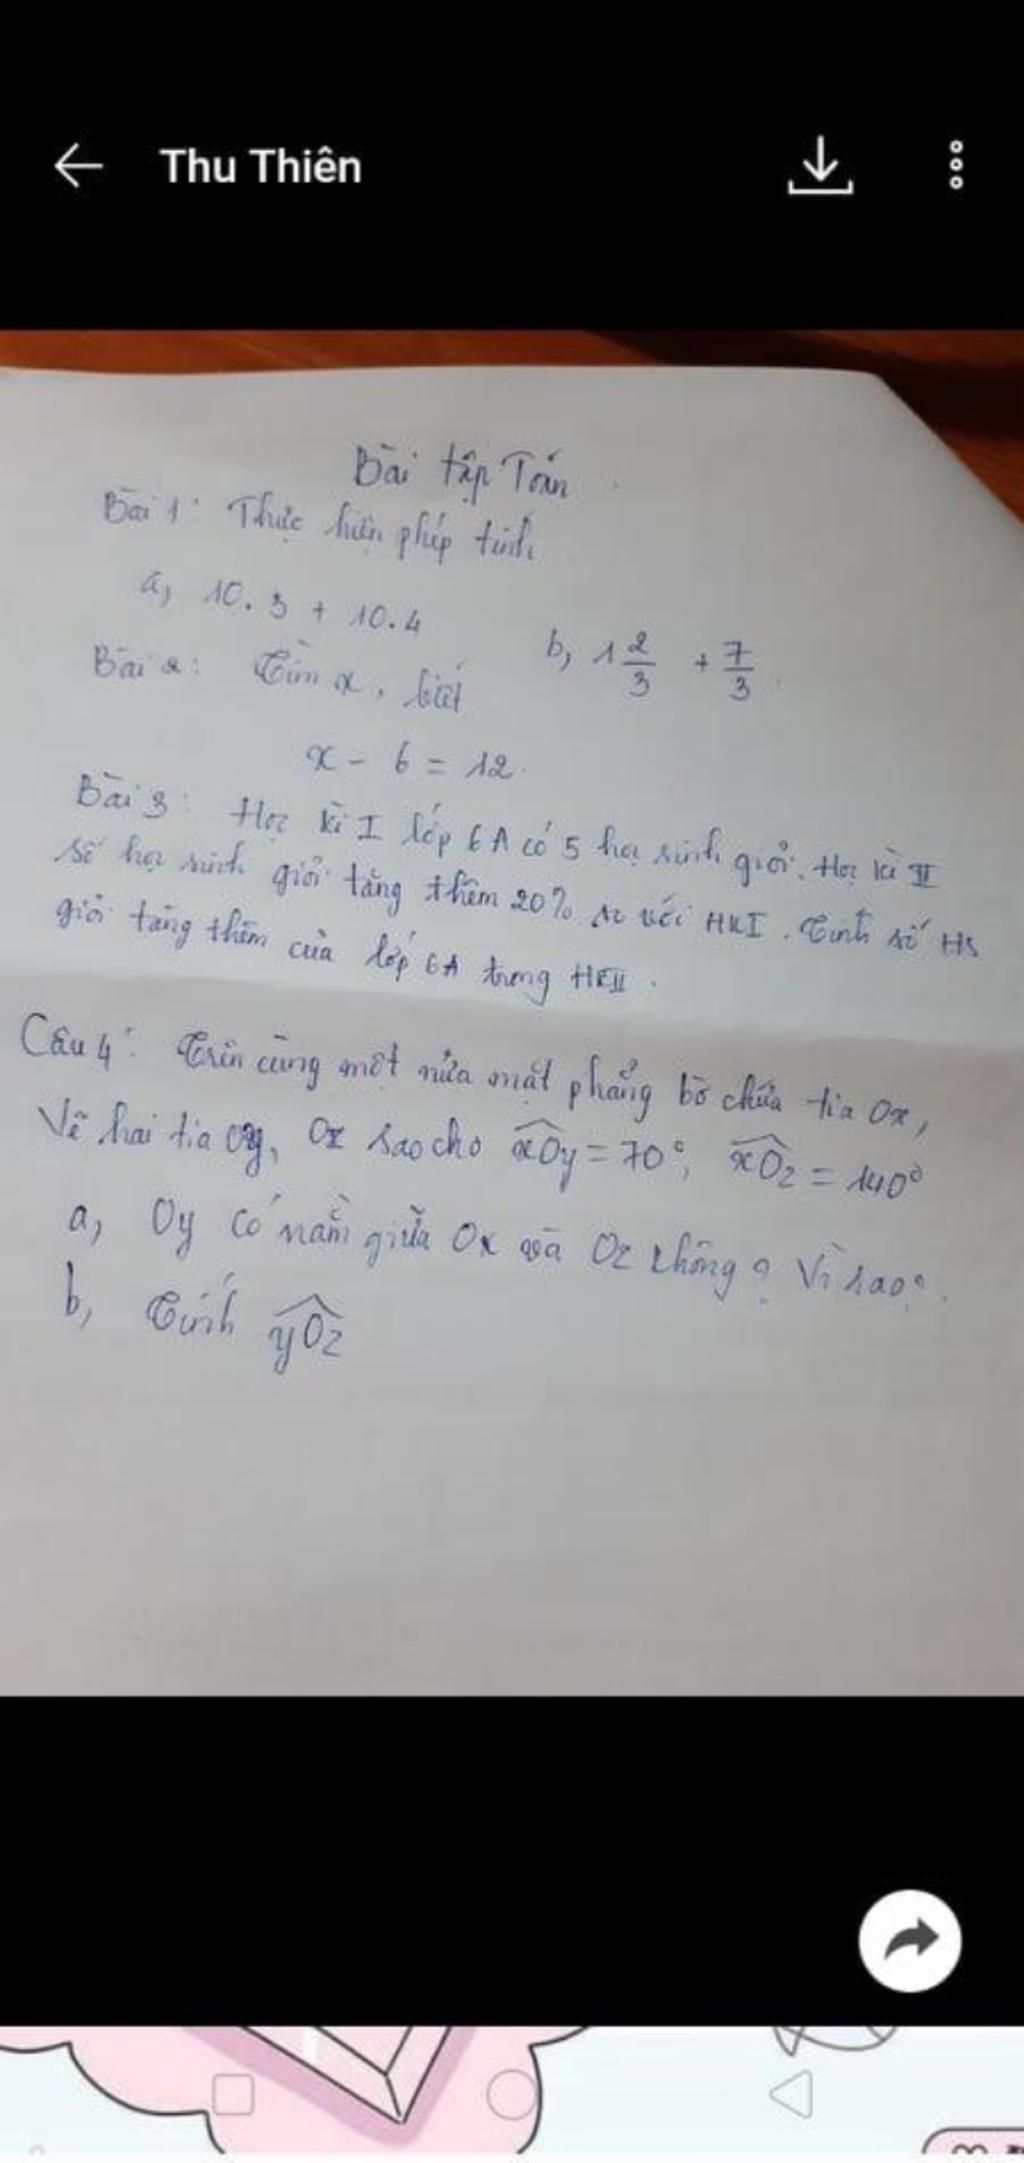 Thu Thiên
Bài tập Toán
Bài 1: Thực hiện phép tính
a, 10.3 + 10.4
b, 1 2/3 + 7/3
Bài 2: Tìm x, biết
x - 6 = 12
Bài 3: Học kì I lớp 6A có 5 học sinh giỏi. Học kì II
số học sinh giỏi tăng thêm 20% so với HKI. Tính số HS
giỏi tăng thêm của lớp 6A trong HKII.
Câu 4: Trên cùng một nửa mặt phẳng bờ chứa tia Ox,
Vẽ hai tia Oy, Oz sao cho xOy = 70°, xOz = 140°
a, Oy có nằm giữa Ox và Oz không? Vì sao?
b, Tính yOz